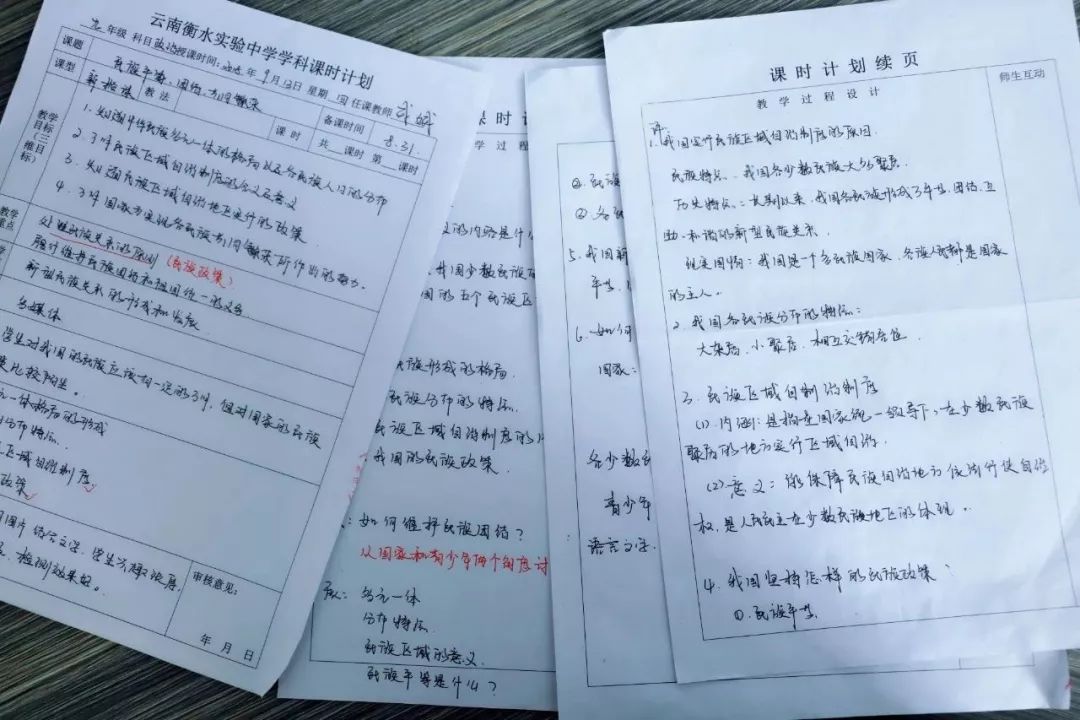 云南衡水实验中学学科课时计划
九年级 科目 政治 授课时间: 年 9月13日 星期 四 任课教师
课题 民族平等、团结、共同繁荣
课型 新授课 教法 备课时间: 8.31.
课时 共 课时 第 课时
教学目标(三维目标)
1. 知道中华民族多元一体的格局以及各民族人口的分布
2. 了解民族区域自治制度的含义及意义
3. 知道民族区域自治地区实行的政策
4. 了解国家为实现各民族共同繁荣所作出的努力。
教学重点 处理民族关系的原则 (民族政策)
履行维护民族团结和祖国统一的义务
新型民族关系的形成和发展
多媒体
学生对我国的民族应该有一定的了解, 但对国家的民族
元一体格局的形成
分布特点
区域自治制度
政策
图片 结合文字, 学生兴趣浓厚,
检测效果好。
审核意见:
年 月 日
教学过程
的内容是什么
我国少数民族
国的五个民族区
民族形成的格局.
民族分布的特点.
民族区域自治制度的
我国的民族政策.
如何维护民族团结?
从国家和青少年两个角度讨
多元一体
分布特点.
民族区域的意义.
民族平等是什么?
②民族
②各民
5.我国新
平等、
6.如何
国家:
各少数民
青少年
语言文字.
课时计划续页
教学过程设计
师生互动
1.我国实行民族区域自治制度的原因.
民族特点:我国各少数民族大多聚居.
历史特点:长期以来,我国各民族形成了平等、团结、互
助、和谐的新型民族关系.
现实国情:我国是一个多民族国家,各族人民都是国家
的主人。
2.我国各民族分布的特点:
大杂居、小聚居、相互交错居住
3.民族区域自制治制度
(1)内涵:是指在国家统一领导下,在少数民族
聚居的地方实行区域自治.
(2)意义:能保障民族自治地方依法行使自治
权,是人民民主在少数民族地区的体现。
4.我国坚持怎样的民族政策:
①.民族平等